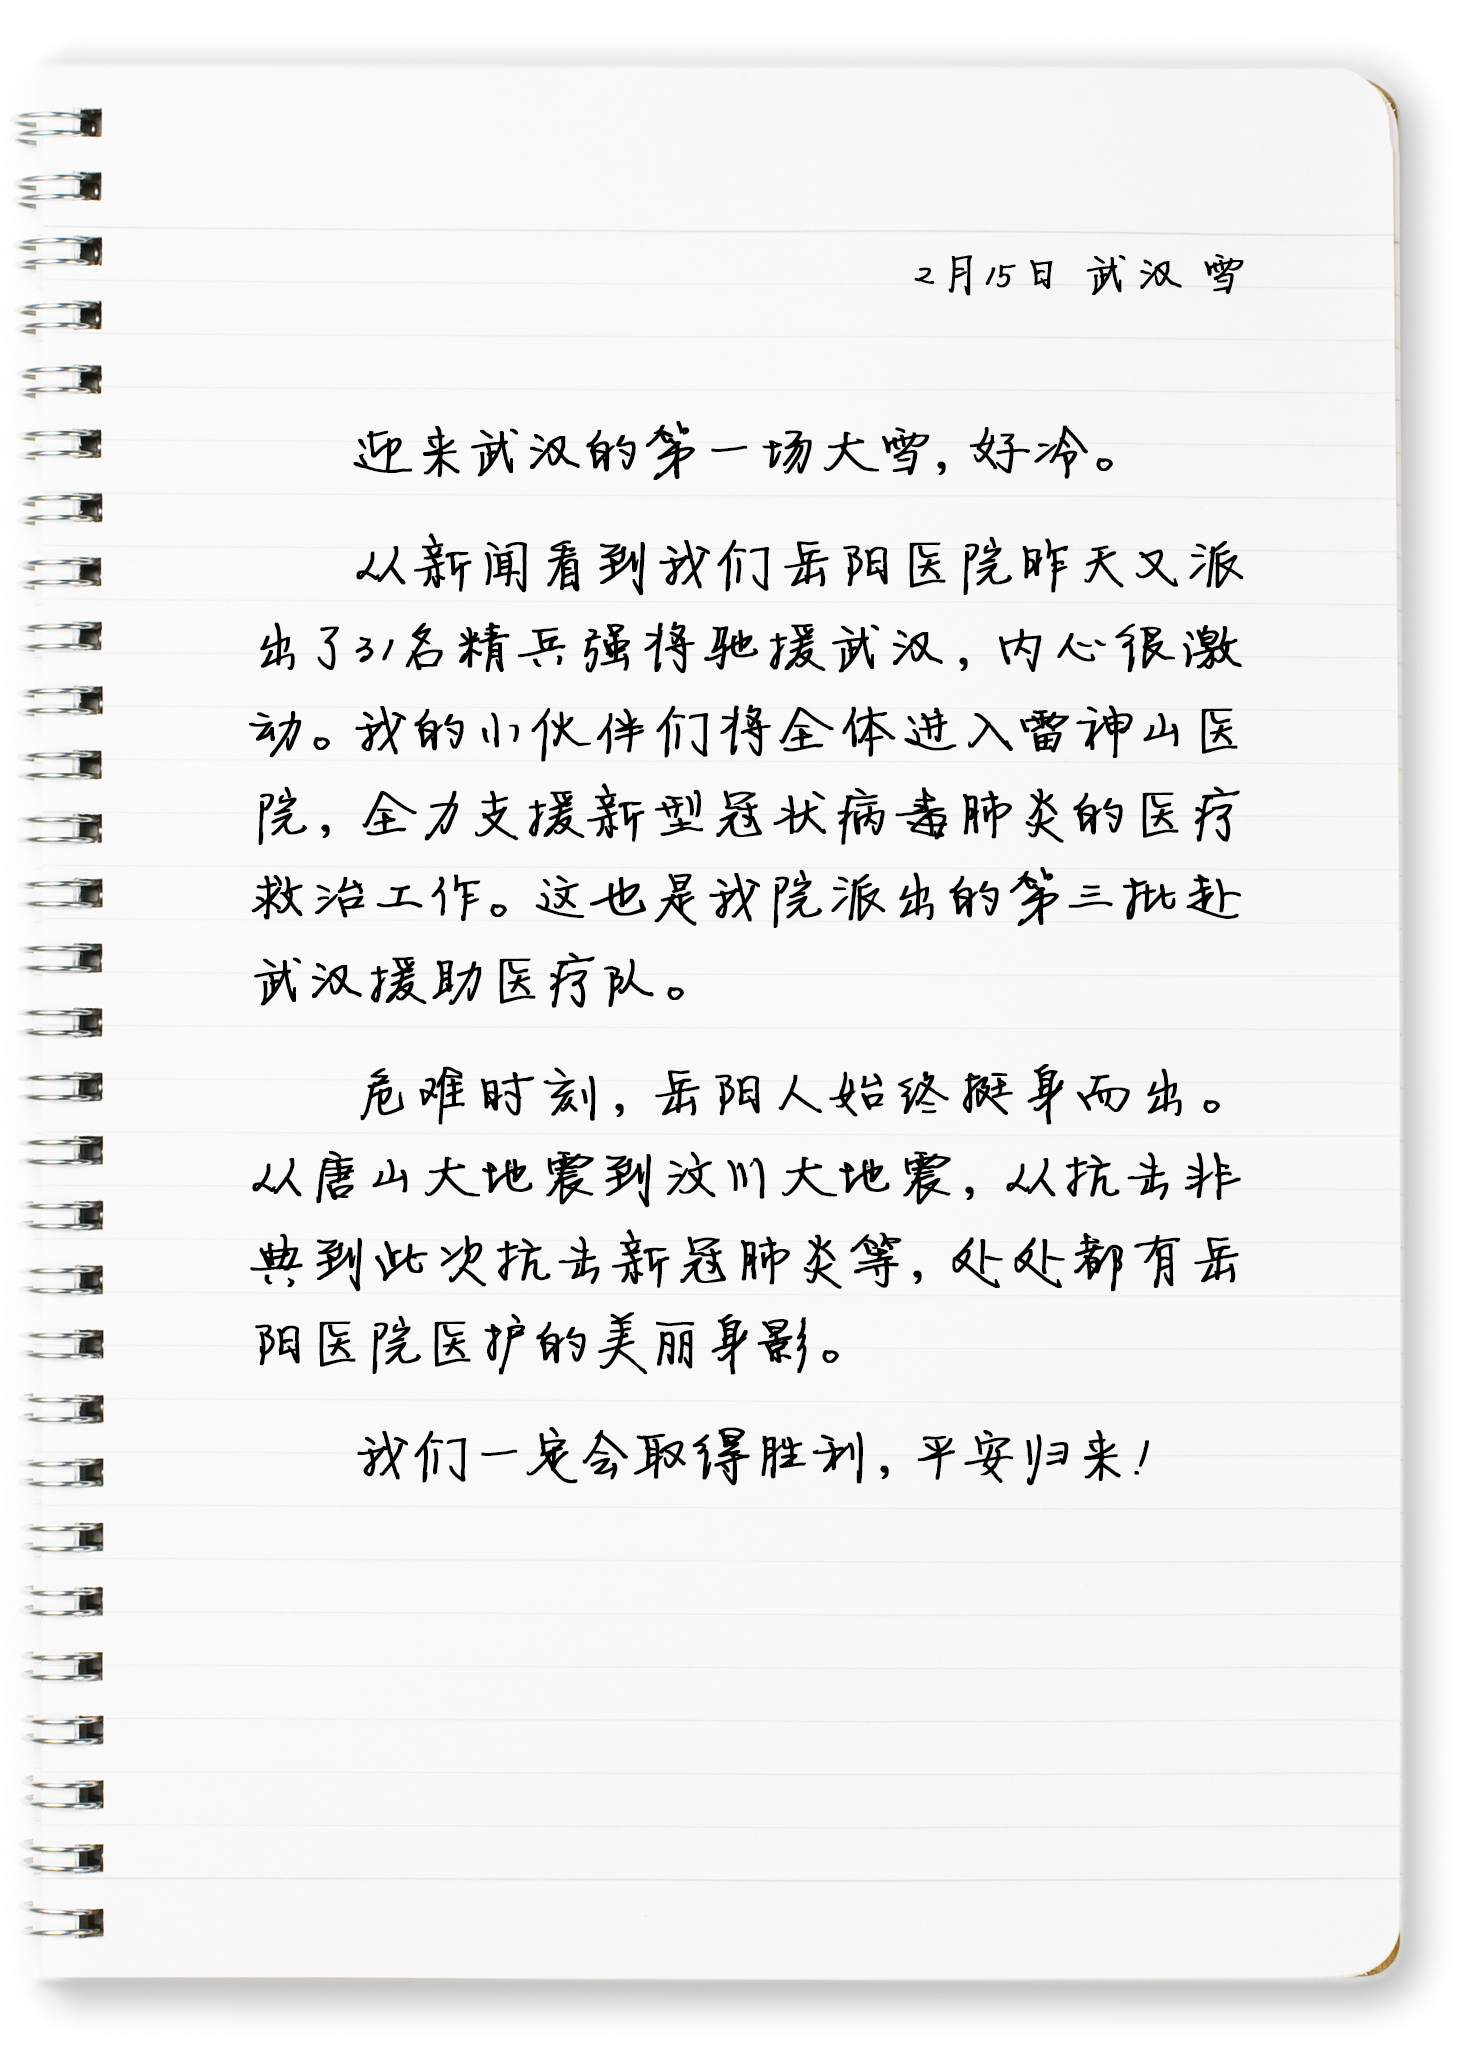 2月15日 武汉 雪
迎来武汉的第一场大雪，好冷。
从新闻看到我们岳阳医院昨天又派
出了31名精兵强将驰援武汉，内心很激
动。我的小伙伴们将全体进入雷神山医
院，全力支援新型冠状病毒肺炎的医疗
救治工作。这也是我院派出的第三批赴
武汉援助医疗队。
危难时刻，岳阳人始终挺身而出。
从唐山大地震到汶川大地震，从抗击非
典到此次抗击新冠肺炎等，处处都有岳
阳医院医护的美丽身影。
我们一定会取得胜利，平安归来！